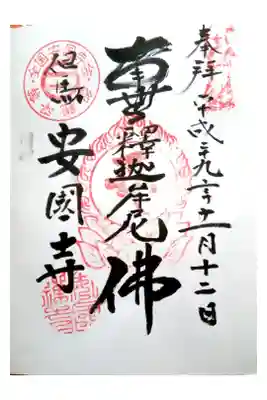 奉拜 平成二九年十一月十二日
南無釋迦牟尼佛
但馬 安國寺